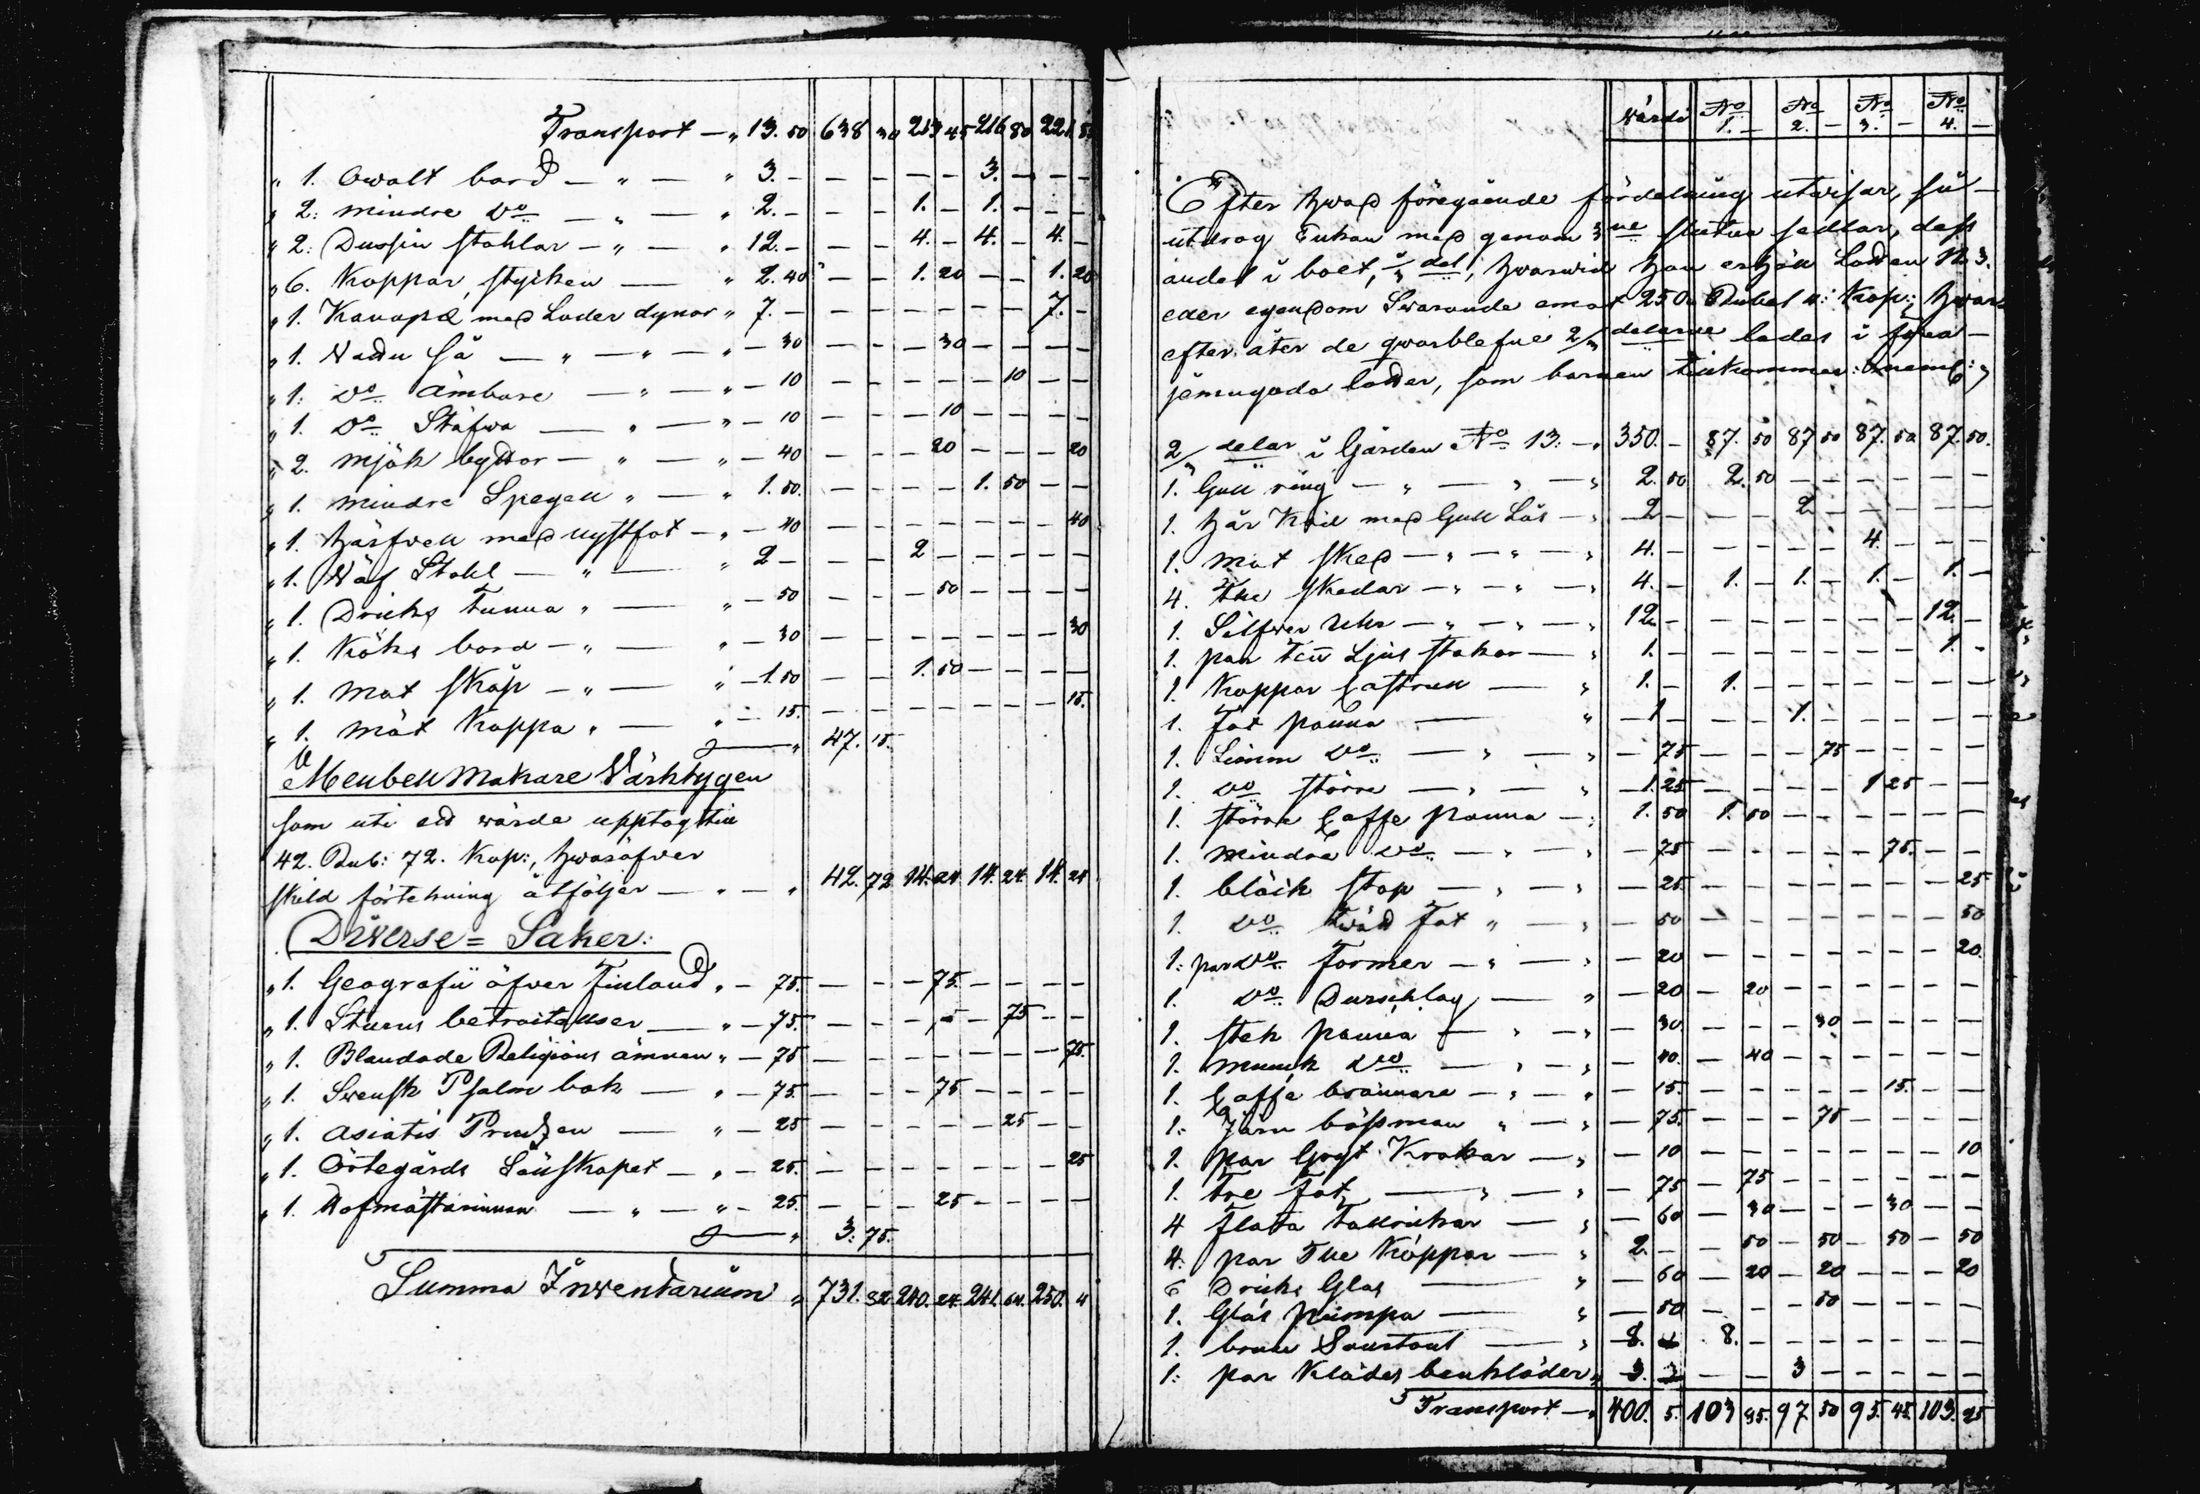 Transport — „ 13. 50 638 30 213 45 216 80 221. 5
„ 1. Owalt bord — „ — „ 3. – – – – – 3. – – –
„ 2: mindre Do — „ — „ 2. – – – 1. – 1. – – –
„ 2: Dussin stohlar — „ — „ 12. – – – 4. – 4. – 4. –
„ 6. Koppar, stycken — „ 2. 40 – – 1. 20 – – 1. 20
„ 1. Kanapé med Läder dynor „ 7. – – – – – – – 7. –
„ 1. Watten Så — „ — „ — „ – 30 – – – 30 – – – –
„ 1: Do Ämbare — „ — „ – 10 – – – – – 10 – –
„ 1. Do Stäfwa — „ — „ – 10 – – – 10 – – – –
„ 2. mjölk byttor — „ — „ – 40 – – – 20 – – – 20
„ 1. mindre Spegell „ — „ 1. 50. – – – – 1. 50 – –
„ 1. härfvell med nystfot — „ – 40 – – – – – – – 40
„ 1. Wäf Stohl — „ — „ 2 – – – 2 – – – – –
„ 1. Dricks Tunna „ — „ – 50 – – – 50 – – – –
„ 1. Köks bord — „ — „ – 30 – – – – – – – 30
„ 1. mat skåp — „ — „ – 1. 50 – – 1. 50 – – – –
„ 1. mät Kappa „ — „ – 15. – – – – – – – 15.
„ 47. 15.
Meubell Makare Värktygen
som uti ett wärde upptagtill
42. Rub: 72. Kop:, hwaröfver
skild förtekning åtföljer — „ — „ 42. 72 14. 24 14. 24. 14. 24
Diverse = Saker:
„ 1. Geografii öfver Finland „ – 75. – – – 75. – – – –
„ 1. Sturms betraktelser — „ – 75. – – – – – 75 – –
„ 1. Blandade Religions ämnen „ – 75 – – – – – – – 75.
„ 1. Swensk Psalm bok — „ – 75. – – – 75 – – – –
„ 1. Asiatis — „ – 25 – – – – – 25 – –
„ 1. Örtegårds Sällskapet — „ – 25. – – – – – – – 25
„ 1. Hofmästarinnan — „ — „ – 25. – – – 25 – – – –
„ 3: 75.
Summa Inventarium „ 731. 92 240. 24. 241. 64. 250. 4
Värde No 1. – No 2. – No 3. – No 4. –
Efter hwad föregående fördelning utwisar, så
utdrog Enkan med genom 3ne slutna sedlar, dess
andel i boet, 1/3 del, hvarwid hon erhöll Lotten N. 3.
eller egendom Swarande emot 250. Rubel 4: Kop:; hwar
efter åter de qwarblefne 2/3 delarne lades i fyra
jämngoda lotter, som barnen tillkommer: Nneml:;
2/3 delar i Gården No 13: — „ 350. – 87. 50 87 50 87. 50. 87. 50.
1. Gull ring — „ — „ — „ 2. 50 2. 50 – – – – – –
1. hår Kedl med Gull Lås — „ – 2 – – – 2 – – – – –
1. mat sked — „ — „ — „ 4. – – – – – 4. – – –
4. the skedar — „ — „ — „ 4. – 1. – 1. – 1. – 1. –
1. Silfwer Uhr — „ — „ — „ 12. – – – – – – – 12. –
1. par Ten Ljus stakar — „ 1. – – – – – – – 1. –
1. Koppar Castrull — „ 1. – 1. – – – – – – –
1. Fat panna — „ – 1 – – – 1. – – – – –
1. Limm Do — „ — „ – 75 – – – 75 – – – –
1. Do större — „ — „ – 1. 25 – – – – 1 25 – –
1. större Caffe panna — „ 1. 50 1. 50 – – – – – –
1. mindre Do — „ — „ – 75 – – – – – 75. – –
1. bläck stop — „ — „ – 25. – – – – – – – 25
1. Do Twätt Fat „ — „ – 50 – – – – – – – 50
1: par Do Former — „ — „ – 20 – – – – – – – 20.
1. Do Durschlag — „ – 20 – 20 – – – – – –
1. stek panna — „ — „ – 30 – – – 30 – – – –
1. munck Do — „ — „ – 40. – 40 – – – – – –
1. Caffe brännare — „ — „ – 15. – – – – – 15. – –
1: Järn bössman „ — „ – 75. – – – 75 – – – –
1. par Gryt Krokar — „ – 10 – – – – – – – 10
1. Tre Fat — „ — „ – 75 – 75 – – – – – –
4 Flata Tallrickar — „ – 60 – 30 – – – 30 – –
4. par The Koppar — „ 2. – – 50 – 50 – 50 – 50
6 Dricks Glas — „ – 60 – 20 – 20 – – – 20
1. Glas pumpa — „ – 50 – – – 50 – – – –
1. brun Surtout — „ 8. – 8. – – – – – – –
1: par Klädes benkläder „ 3. – – – 3 – – – – –
Transport — „ 400. 5. 103 85. 97 50 95. 45. 103. 25